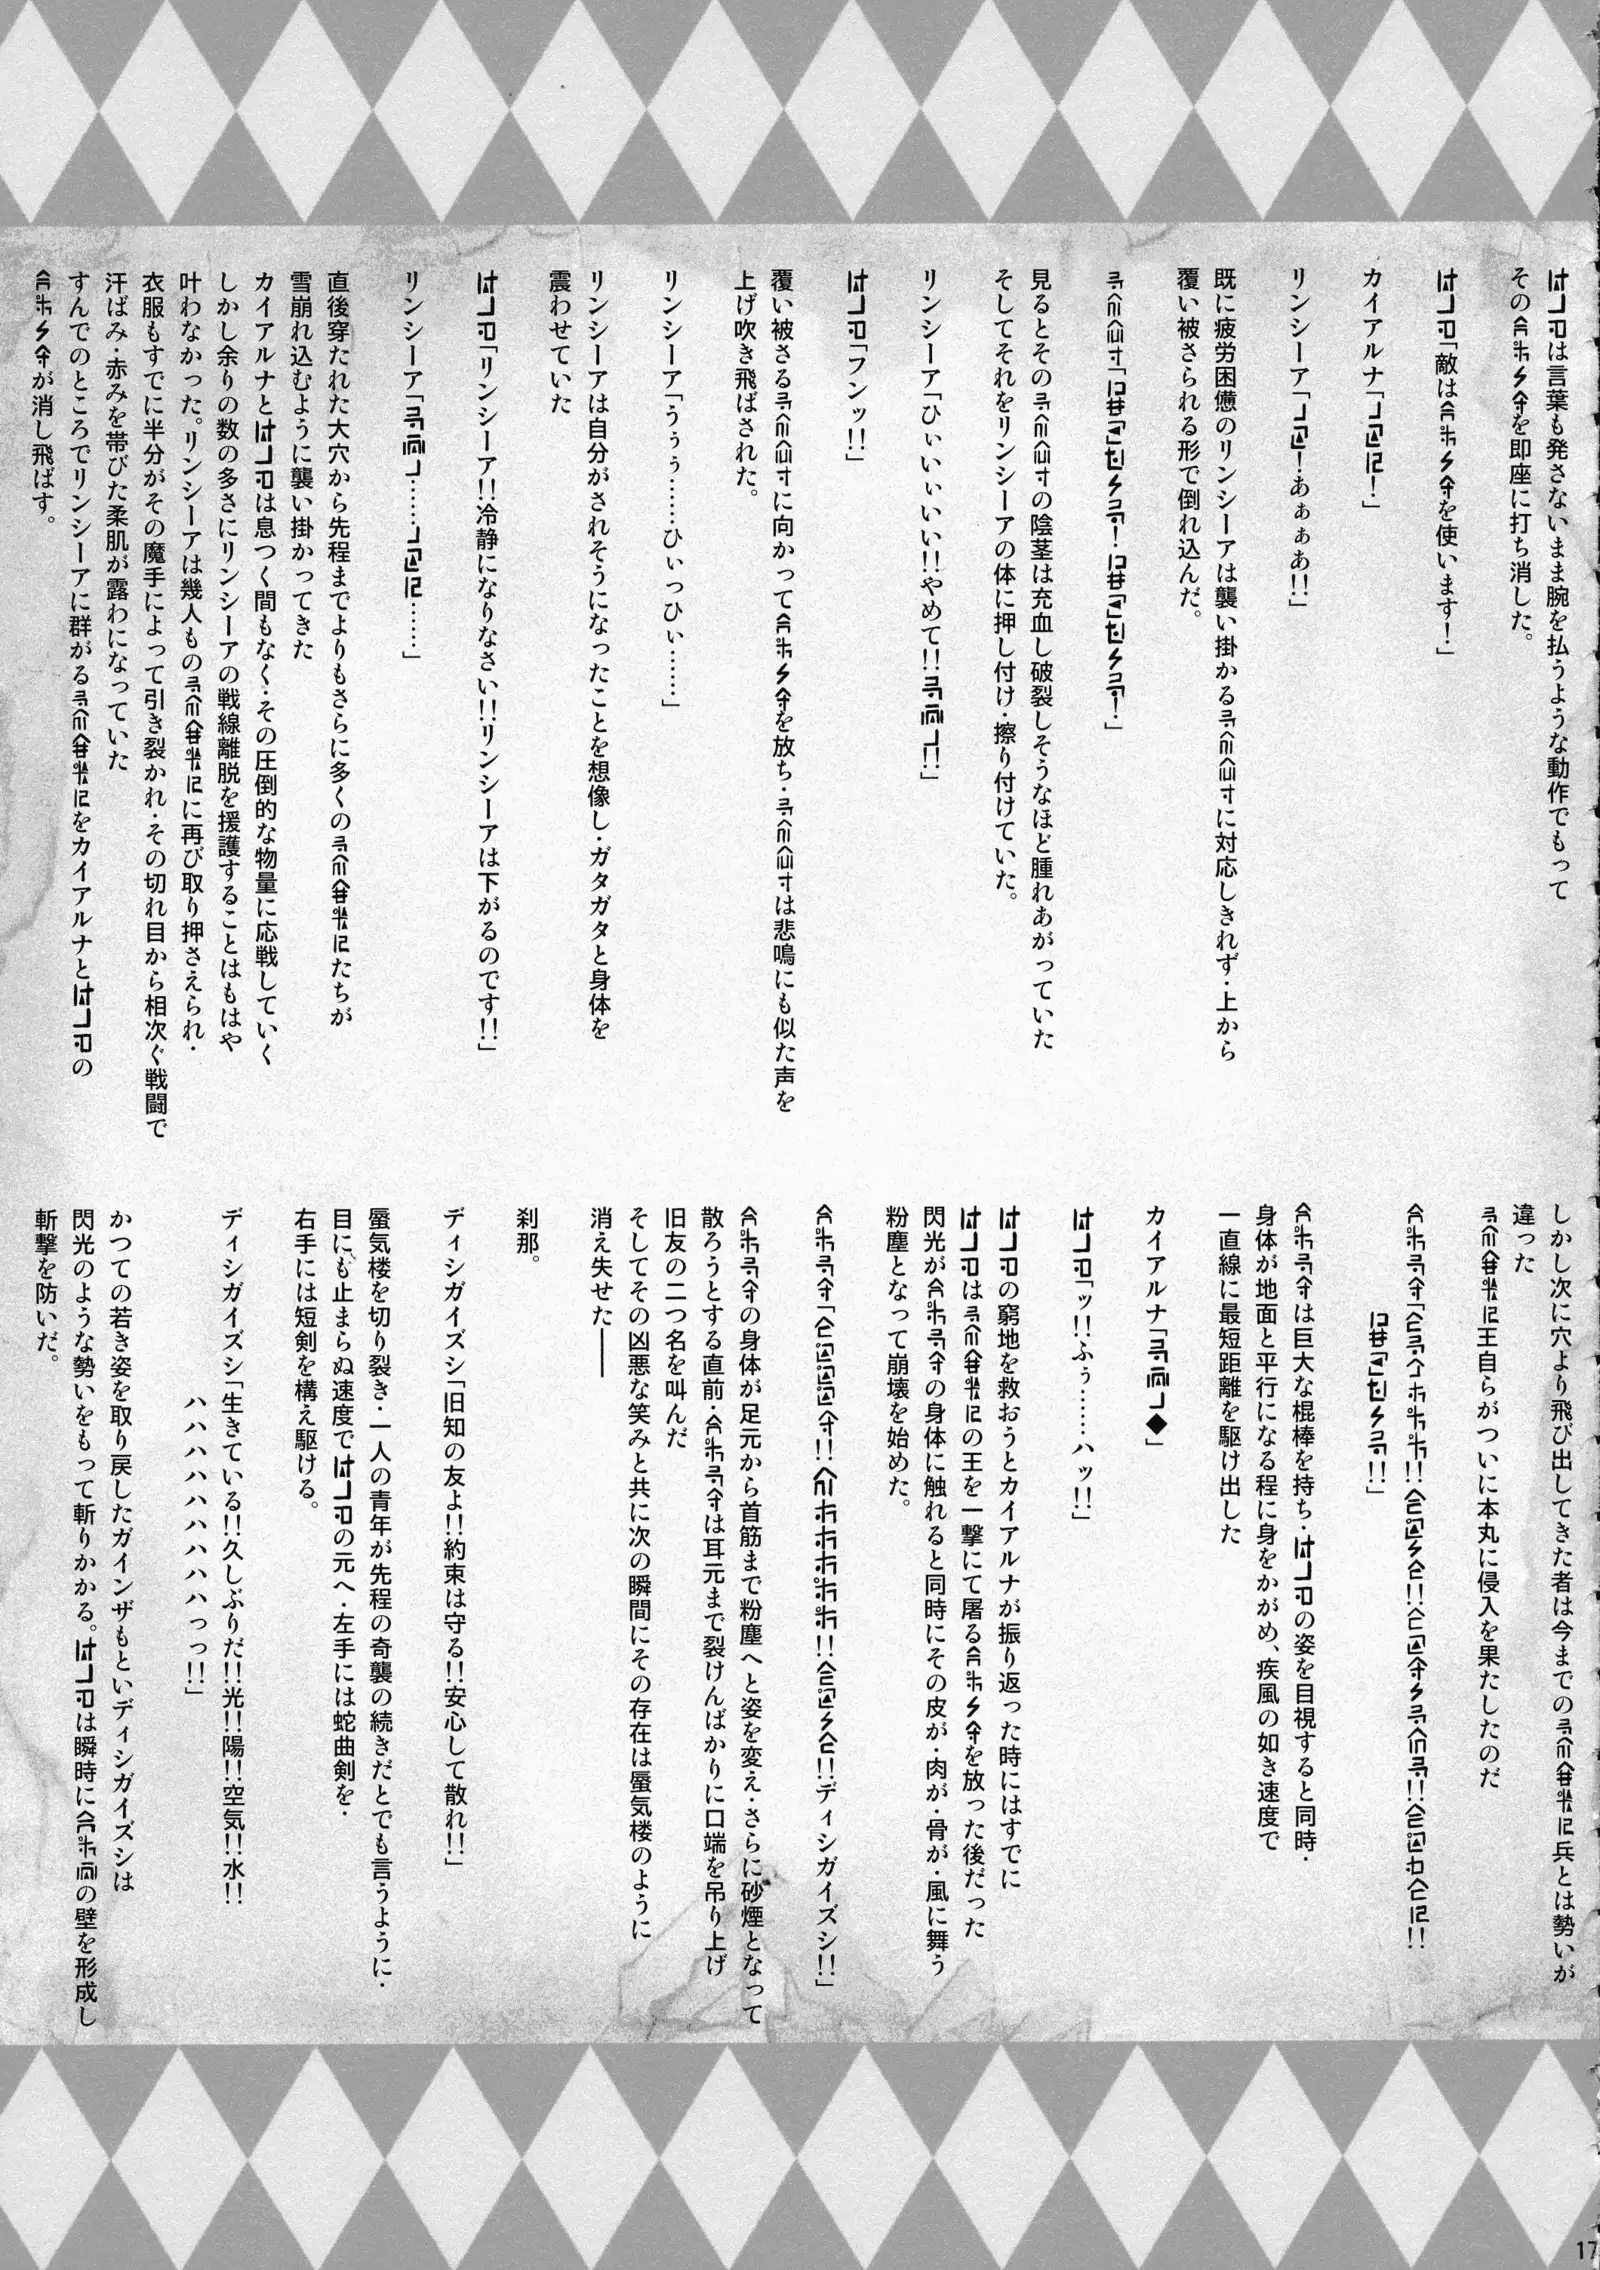 は言葉も発さないまま腕を払うような動作でもって
そのを即座に打ち消した。
「敵はを使います！」
カイアルナ「！」
リンシーア「！あぁぁあ!!」
既に疲労困憊のリンシーアは襲い掛かるに対応しきれず・上から
覆い被さられる形で倒れ込んだ。
「！！」
見るとその の陰茎は充血し破裂しそうなほど腫れあがっていた
そしてそれをリンシーアの体に押し付け・擦り付けていた。
リンシーア「ひぃぃいぃいい!!やめて!!!!」
「フンッ!!」
覆い被さるに向かってを放ち・は悲鳴にも似た声を
上げ吹き飛ばされた。
リンシーア「うぅぅ……ひぃっひぃ……」
リンシーアは自分がされそうになったことを想像し・ガタガタと身体を
震わせていた
「リンシーア!!冷静になりなさい!!リンシーアは下がるのです!!」
リンシーア「…………」
直後穿たれた大穴から先程までよりもさらに多くのたちが
雪崩れ込むように襲い掛かってきた
カイアルナとは息つく間もなく・その圧倒的な物量に応戦していく
しかし余りの数の多さにリンシーアの戦線離脱を援護することはもはや
叶わなかった。リンシーアは幾人ものに再び取り押さえられ・
衣服もすでに半分がその魔手によって引き裂かれ・その切れ目から相次ぐ戦闘で
汗ばみ・赤みを帯びた柔肌が露わになっていた
すんでのところでリンシーアに群がるをカイアルナとの
が消し飛ばす。
しかし次に穴より飛び出してきた者は今までの兵とは勢いが
違った
王自らがついに本丸に侵入を果たしたのだ
「!!!!!!!!
!!」
は巨大な棍棒を持ち・の姿を目視すると同時・
身体が地面と平行になる程に身をかがめ、疾風の如き速度で
一直線に最短距離を駆け出した
カイアルナ「◆」
「ッ!!ふぅ……ハッ!!」
の窮地を救おうとカイアルナが振り返った時にはすでに
はの王を一撃にて屠るを放った後だった
閃光がの身体に触れると同時にその皮が・肉が・骨が・風に舞う
粉塵となって崩壊を始めた。
「!!!!!!ディシガイズシ!!」
の身体が足元から首筋まで粉塵へと姿を変え・さらに砂煙となって
散ろうとする直前・は耳元まで裂けんばかりに口端を吊り上げ
旧友の二つ名を叫んだ
そしてその凶悪な笑みと共に次の瞬間にその存在は蜃気楼のように
消え失せた――
刹那。
ディシガイズシ「旧知の友よ!!約束は守る!!安心して散れ!!」
蜃気楼を切り裂き・一人の青年が先程の奇襲の続きだとでも言うように・
目にも止まらぬ速度での元へ・左手には蛇曲剣を・
右手には短剣を構え駆ける。
ディシガイズシ「生きている!!久しぶりだ!!光!!陽!!空気!!水!!
ハハハハハハハハハっっ!!」
かつての若き姿を取り戻したガインザもといディシガイズシは
閃光のような勢いをもって斬りかかる。は瞬時にの壁を形成し
斬撃を防いだ。
17